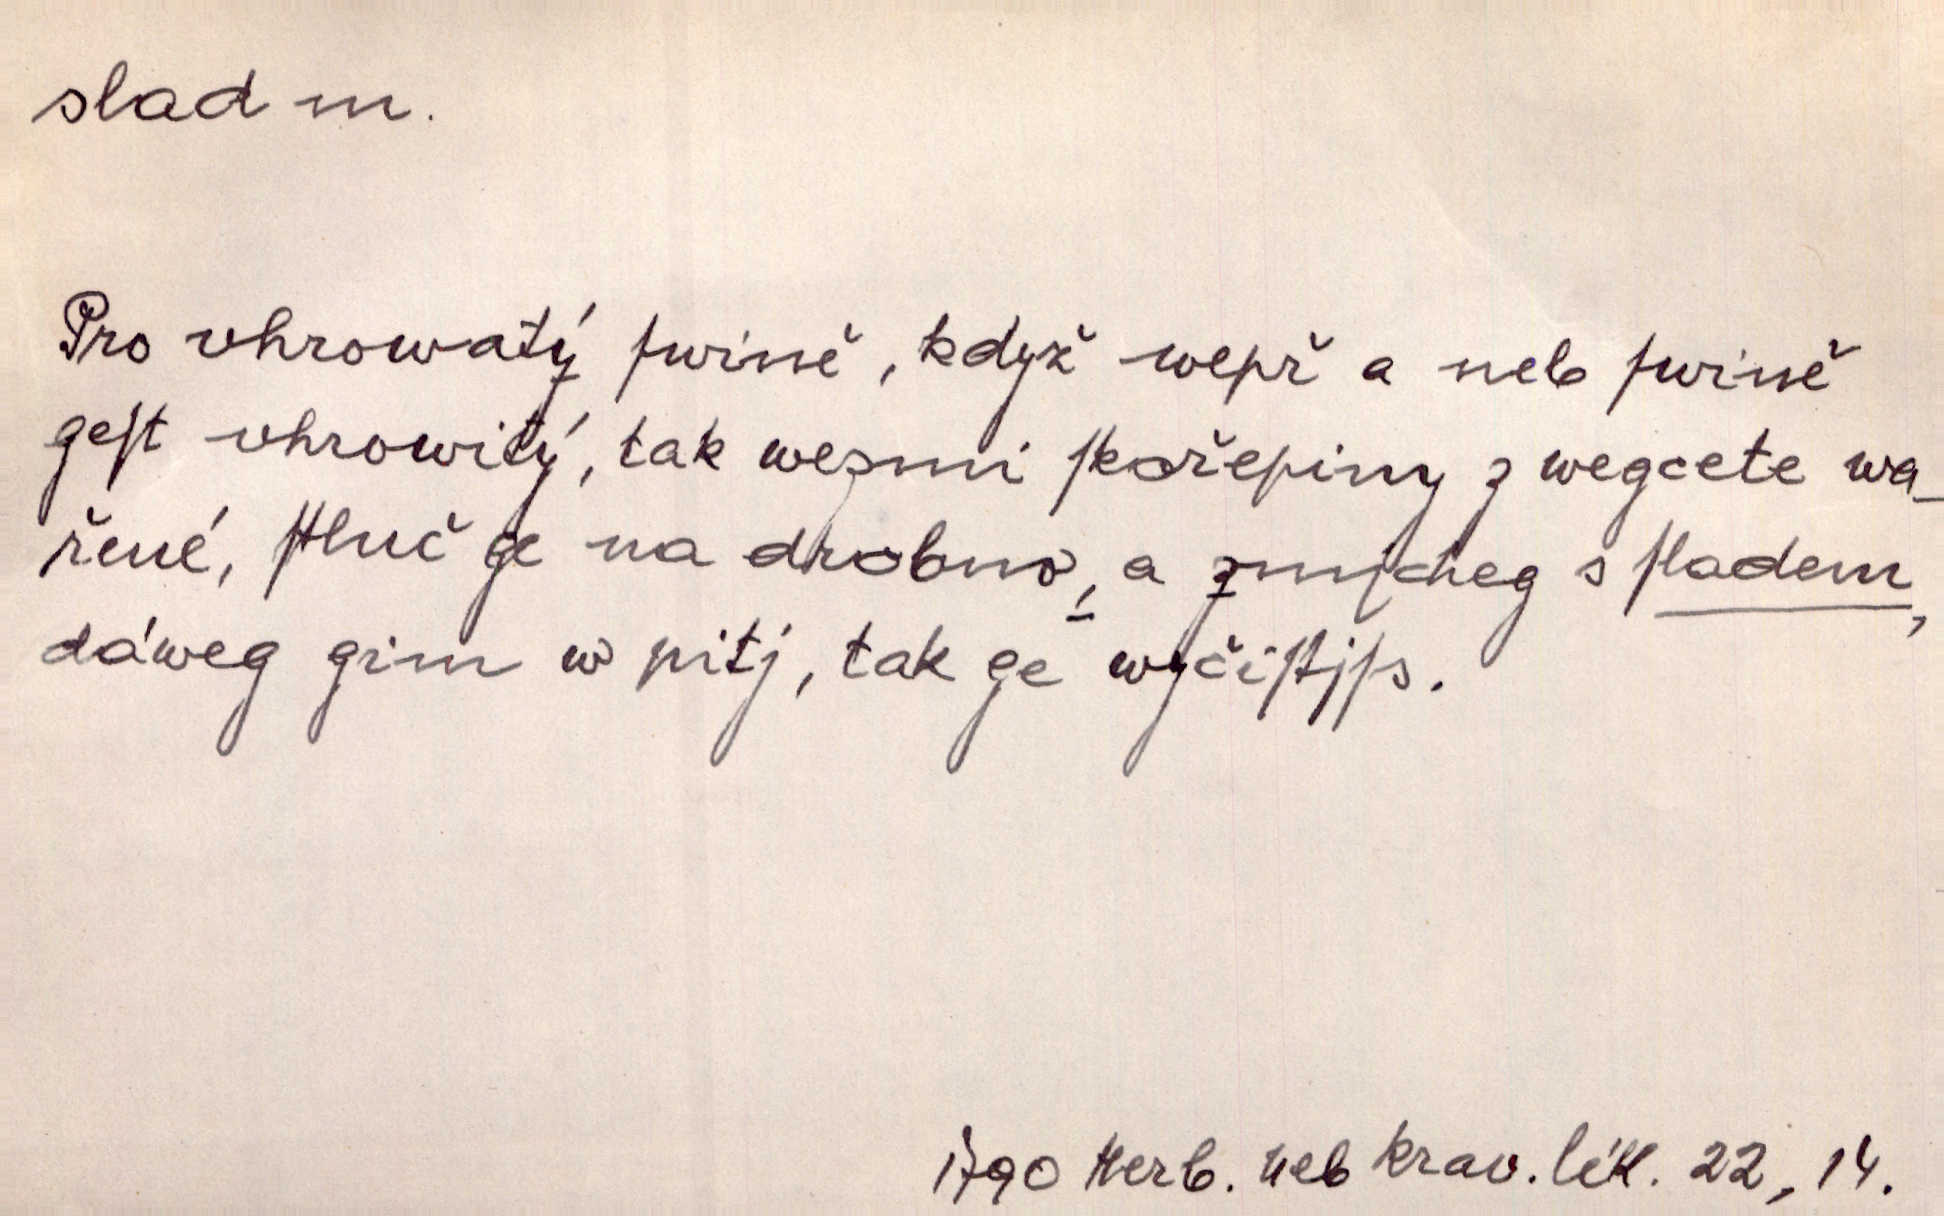 slad m.
Pro vhrowatý ſwině, když wepř a neb ſwině
geſt vhrowitý, tak wezmi ſkořepiny z wegcete wa-
řené, ſtluč ge na drobno, a zmjcheg s ſladem,
dáweg gim w pitj, tak ge wyčiſtjſs.
1790 Herb. neb krav. lék. 22, 14.